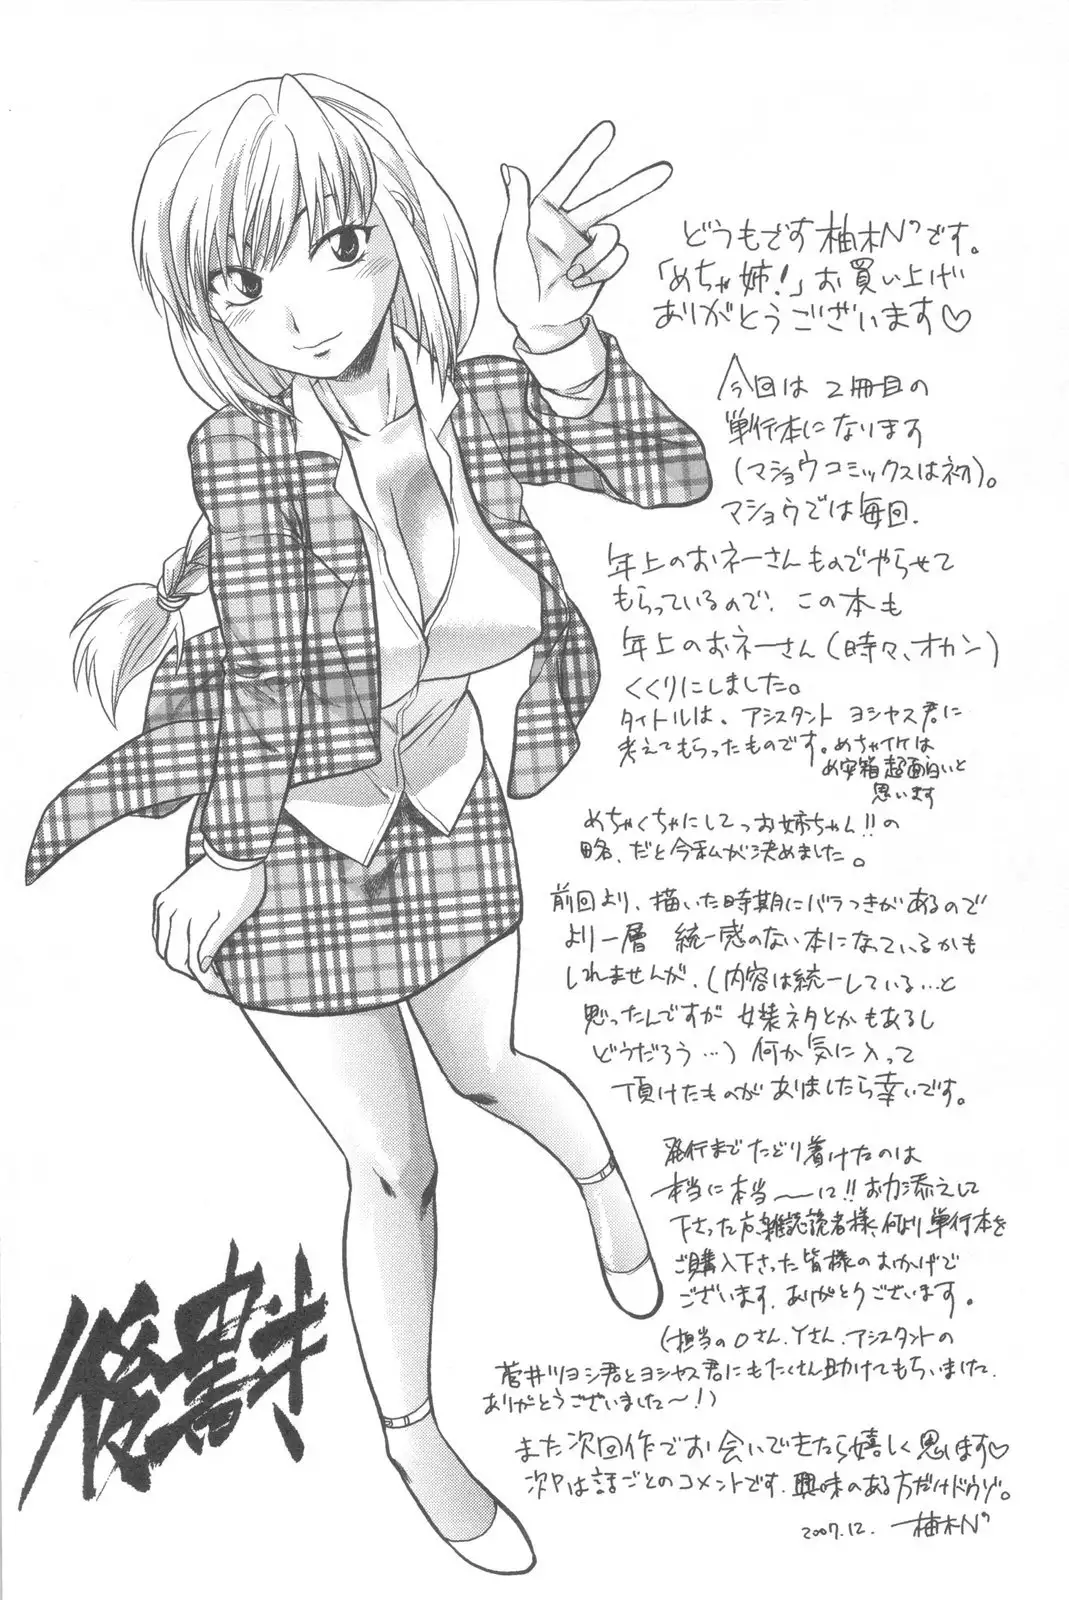 どうもです柚木N'です。
「めちゃ姉!」お買い上げ
ありがとうございます♡
今回は2冊目の
単行本になります
(マショウコミックスは初)。
マショウでは毎回、
年上のおネーさんものでやらせて
もらっているので、この本も
年上のおネーさん(時々、オカン)
くくりにしました。
タイトルは、アシスタント ヨシヤス君に
考えてもらったものです。めちゃイケは
め安箱超面白いと
思います
めちゃくちゃにしてっお姉ちゃん!!の
略、だと今私が決めました。
前回より、描いた時期にバラつきがあるので
より一層 統一感のない本になっているかも
しれませんが、(内容は統一している…と
思ったんですが 女装ネタとかもあるし
どうだろう…)何か気に入って
頂けたものがありましたら幸いです。
発行までたどり着けたのは
本当に本当〜に!!お力添えして
下さった方、雑誌読者様、何より単行本を
ご購入下さった皆様のおかげで
ございます、ありがとうございます。
(担当のOさん、Yさん、アシスタントの
菅井ツヨシ君とヨシヤス君にもたくさん助けてもらいました、
ありがとうございました〜!)
また次回作でお会いできたら嬉しく思います♡
次Pは話ごとのコメントです、興味のある方だけドウゾ。
2007.12. 柚木N'
後書き